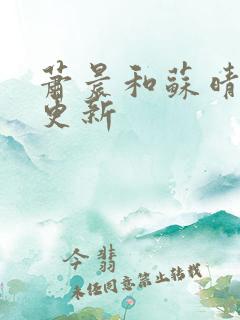 萧晨和蘇晴
更新
今翡
未经同意禁止转载